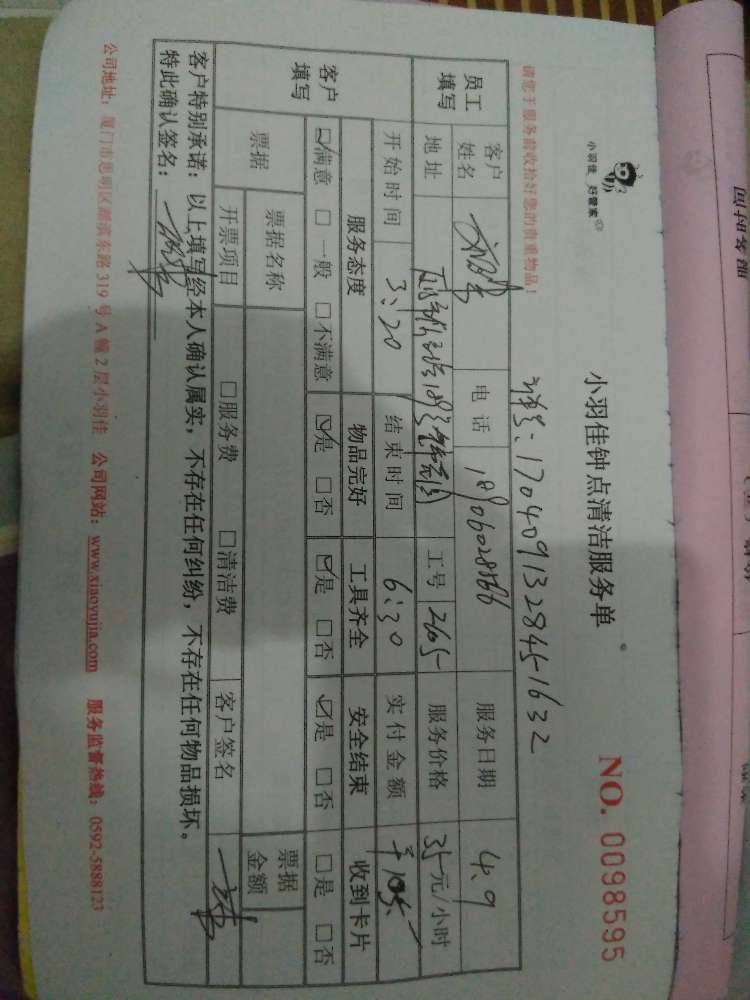 小羽佳 好管家
小羽佳钟点清洁服务单
NO. 0098595
请您于服务前收拾好您的贵重物品！
单号：170409132845-1632
员工填写 客户姓名 电话 服务日期 4.9
地址 工号 2605 服务价格 35元/小时
开始时间 3:20 结束时间 6:20 实付金额 ¥105
客户填写 服务态度 物品完好 工具齐全 安全结束 收到卡片
☑满意 □一般 □不满意 ☑是 □否 ☑是 □否 ☑是 □否 □是 □否
票据 票据名称 票据金额
开票项目 □服务费 □清洁费 客户签名
客户特别承诺：以上填写经本人确认属实，不存在任何纠纷，不存在任何物品损坏。
特此确认签名：
公司地址：厦门市思明区湖滨东路319号A幢2层小羽佳 公司网站：www.xiaoyujia.com 服务监督热线：0592-5888123